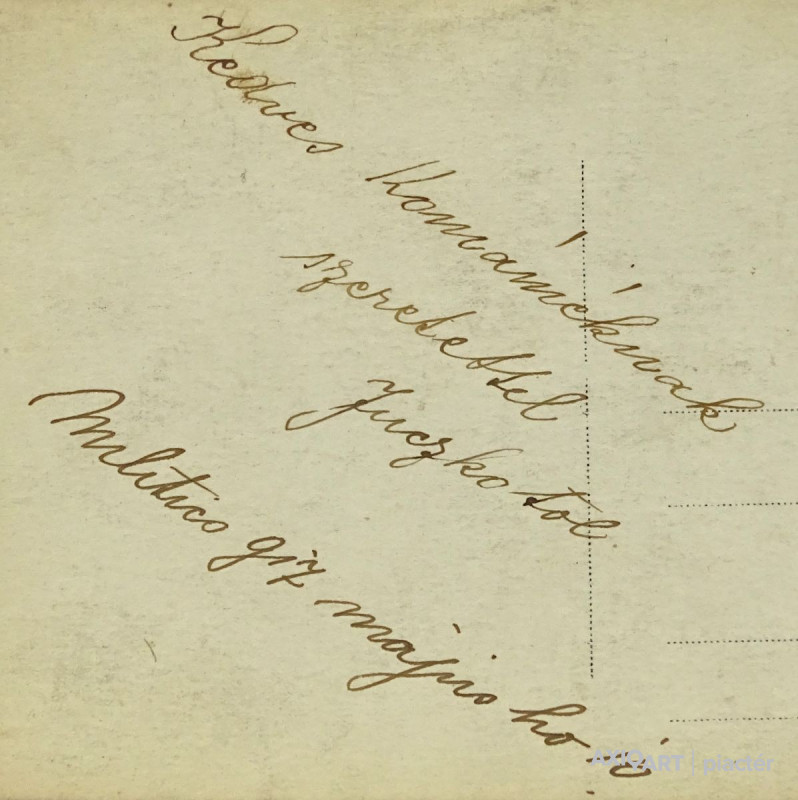 Kedves Komáméknak
szeretettel
Juczko tol
Militics 917 május hó 6
AXIOART | piactér